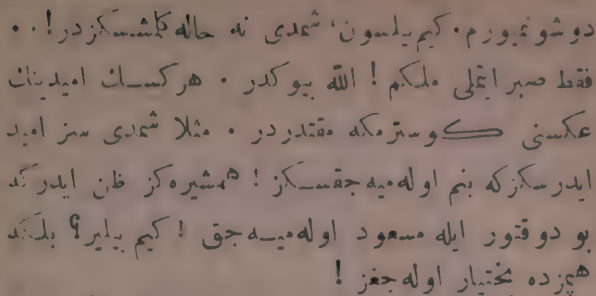 دوشونیورم. کیم بیلسون، شمدی نه حاله کلمشسکزدر!..
فقط صبر ایتملی ملکم! الله بیوکدر. هرکسك امیدینك
عکسنی کوسترمکه مقتدردر. مثلا شمدی سز امید
ایدرسکزکه بنم اوله‌میه‌جقسکز! همشیره‌کز ظن ایدرکه
بو دوقتور ایله مسعود اوله‌میه‌جق! کیم بیلیر؟ بلکه
هپمزده بختیار اوله‌جغز!